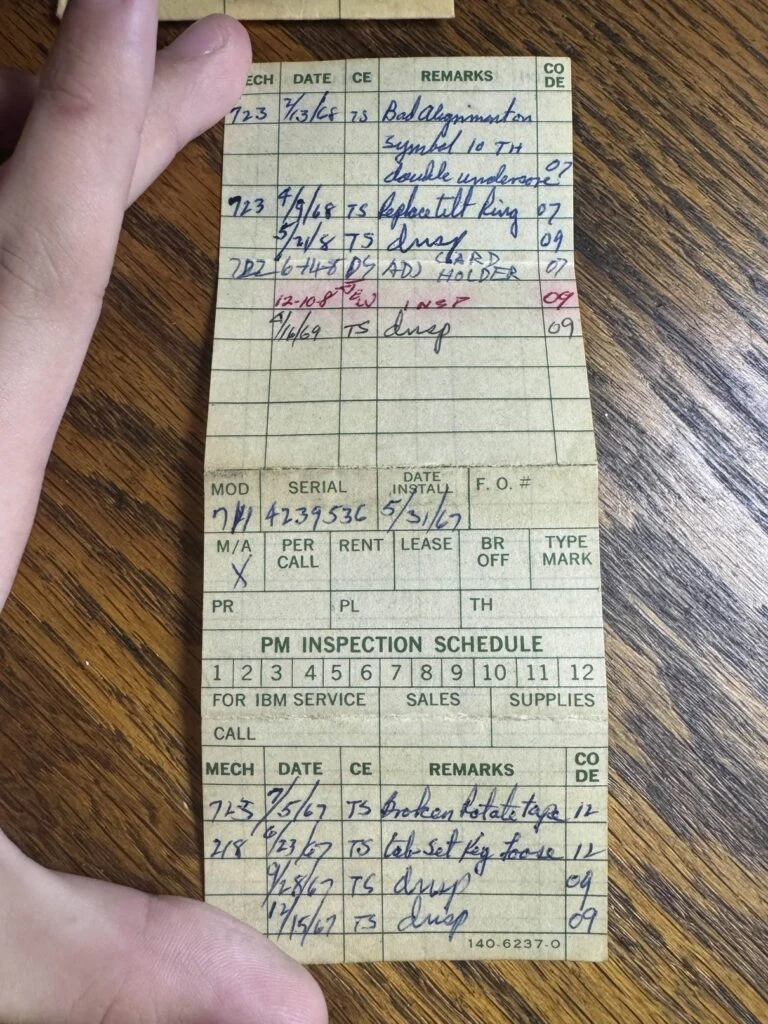 MECH DATE CE REMARKS CO DE
723 2/13/68 TS Bad Alignment on
symbol 10 TH
double underscore 07
723 4/9/68 TS Replace tilt Ring 07
5/21/8 TS insp 09
722 6-14-8 ADJ CARD HOLDER 07
12-10-8 INSP 09
4/16/69 TS insp 09
MOD SERIAL DATE INSTALL F. O. #
711 4239536 5/31/67
M/A PER CALL RENT LEASE BR OFF TYPE MARK
X
PR PL TH
PM INSPECTION SCHEDULE
1 2 3 4 5 6 7 8 9 10 11 12
FOR IBM SERVICE SALES SUPPLIES
CALL
MECH DATE CE REMARKS CO DE
723 7/5/67 TS Broken Rotate tape 12
218 /23/67 TS tab-set Key loose 12
9/28/67 TS insp 09
12/15/67 TS insp 09
140-6237-0